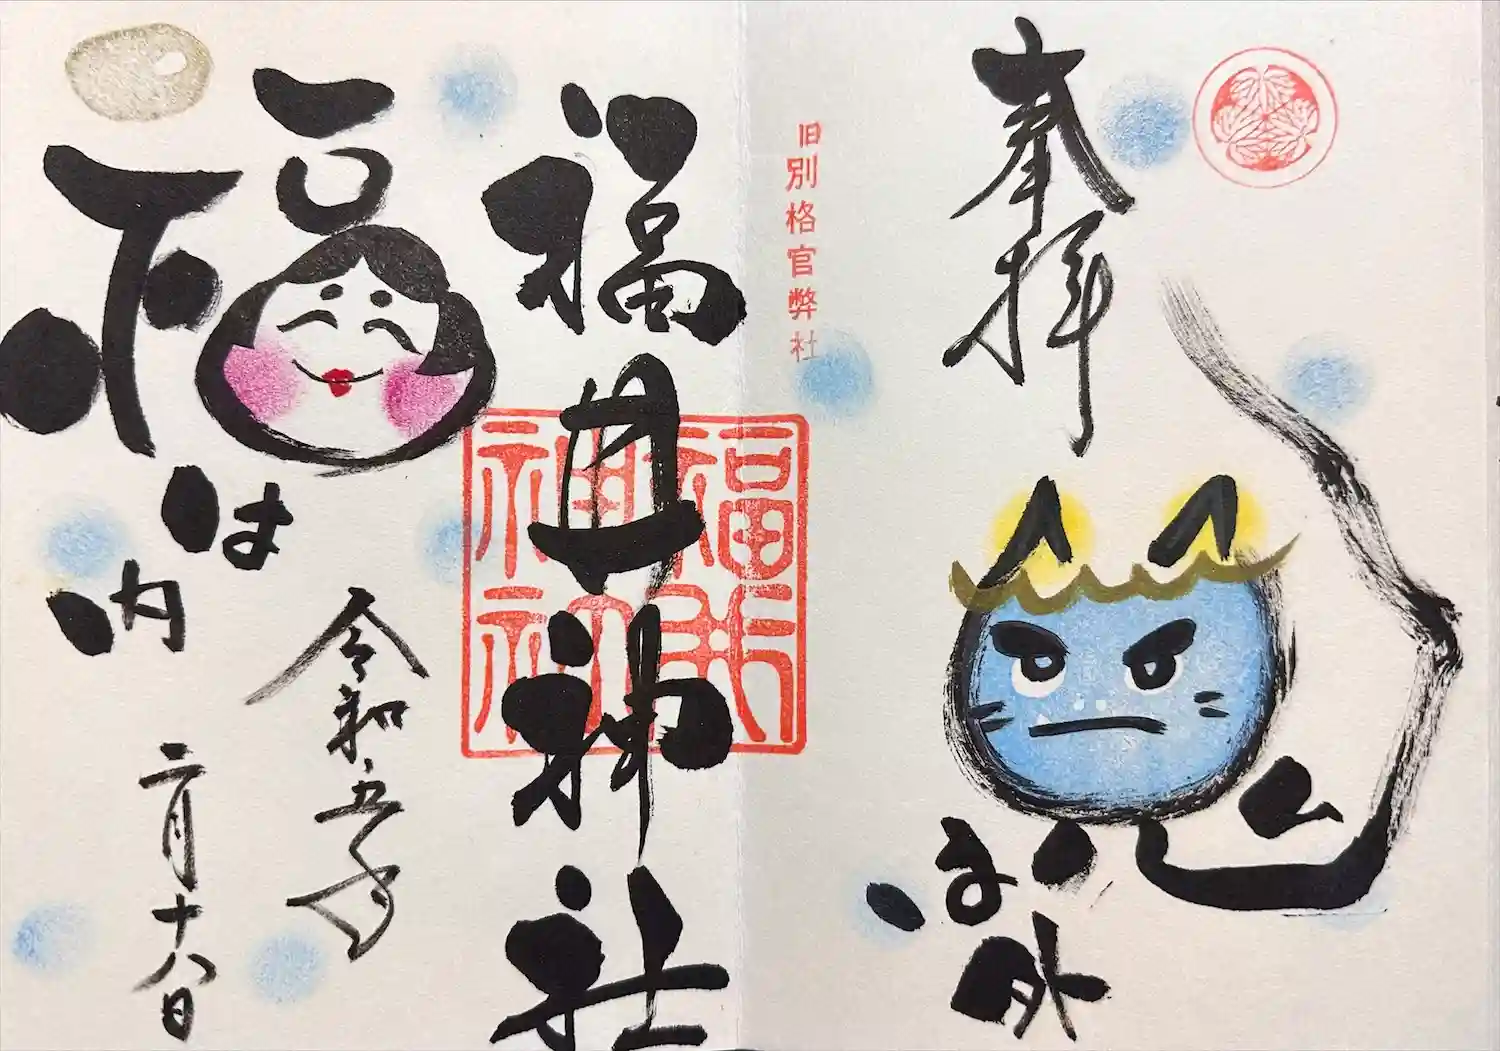 奉拝
鬼は外
旧別格官幣社
福井神社
福井神社
福は内
令和五年
二月十八日